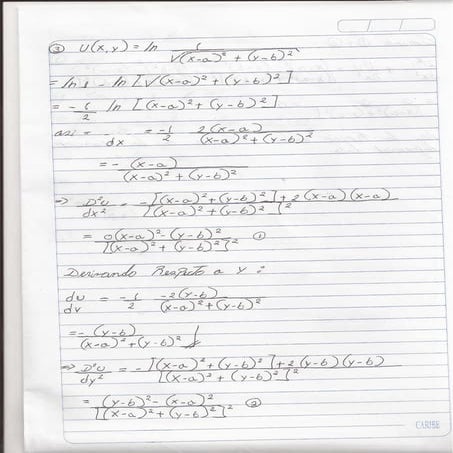 ③ U(x,y) = ln 1 / √(x-a)² + (y-b)²
= ln 1 - ln [√(x-a)² + (y-b)²]
= -1/2 ln [(x-a)² + (y-b)²]
asi = / dx = -1/2 2(x-a) / (x-a)² + (y-b)²
= - (x-a) / (x-a)² + (y-b)²
⇒ D²U / dx² = -[(x-a)² + (y-b)²] + 2(x-a)(x-a) / [(x-a)² + (y-b)²]²
= (x-a)² - (y-b)² / [(x-a)² + (y-b)²]² ①
Derivando Respecto a y :
du / dy = -1/2 -2(y-b) / (x-a)² + (y-b)²
= - (y-b) / (x-a)² + (y-b)²
⇒ D²U / dy² = -[(x-a)² + (y-b)²] + 2(y-b)(y-b) / [(x-a)² + (y-b)²]²
= (y-b)² - (x-a)² / [(x-a)² + (y-b)²]² ②
CARIBE